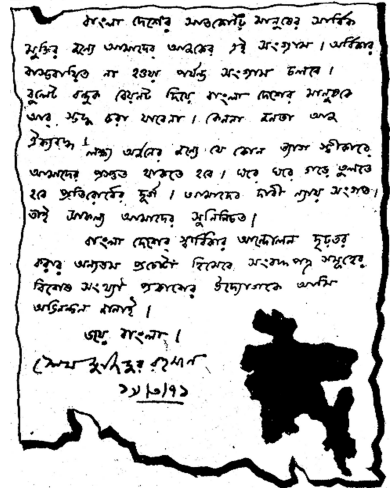 বাংলা দেশের সাতকোটি মানুষের সার্বিক
মুক্তির জন্যে আমাদের আজকের এই সংগ্রাম। অধিকার
বাস্তবায়িত না হওয়া পর্যন্ত সংগ্রাম চলবে।
বুলেট বন্দুক বেয়নেট দিয়ে বাংলা দেশের মানুষকে
আর স্তব্ধ করা যাবেনা। কেননা জনতা আজ
ঐক্যবদ্ধ।
লক্ষ্য অর্জনের জন্যে যে কোন ত্যাগ স্বীকারে
আমাদের প্রস্তুত থাকতে হবে। ঘরে ঘরে গড়ে তুলতে
হবে প্রতিরোধের দুর্গ। আমাদের দাবী ন্যায় সংগত।
তাই সাফল্য আমাদের সুনিশ্চিত।
বাংলা দেশের স্বাধিকার আন্দোলন দৃঢ়তর
করার অন্যতম প্রচেষ্টা হিসেবে সংবাদ পত্র সমূহের
বিশেষ সংখ্যা প্রকাশের উদ্যোগকে আমি
অভিনন্দন জানাই।
জয় বাংলা।
শেখ মুজিবুর রহমান